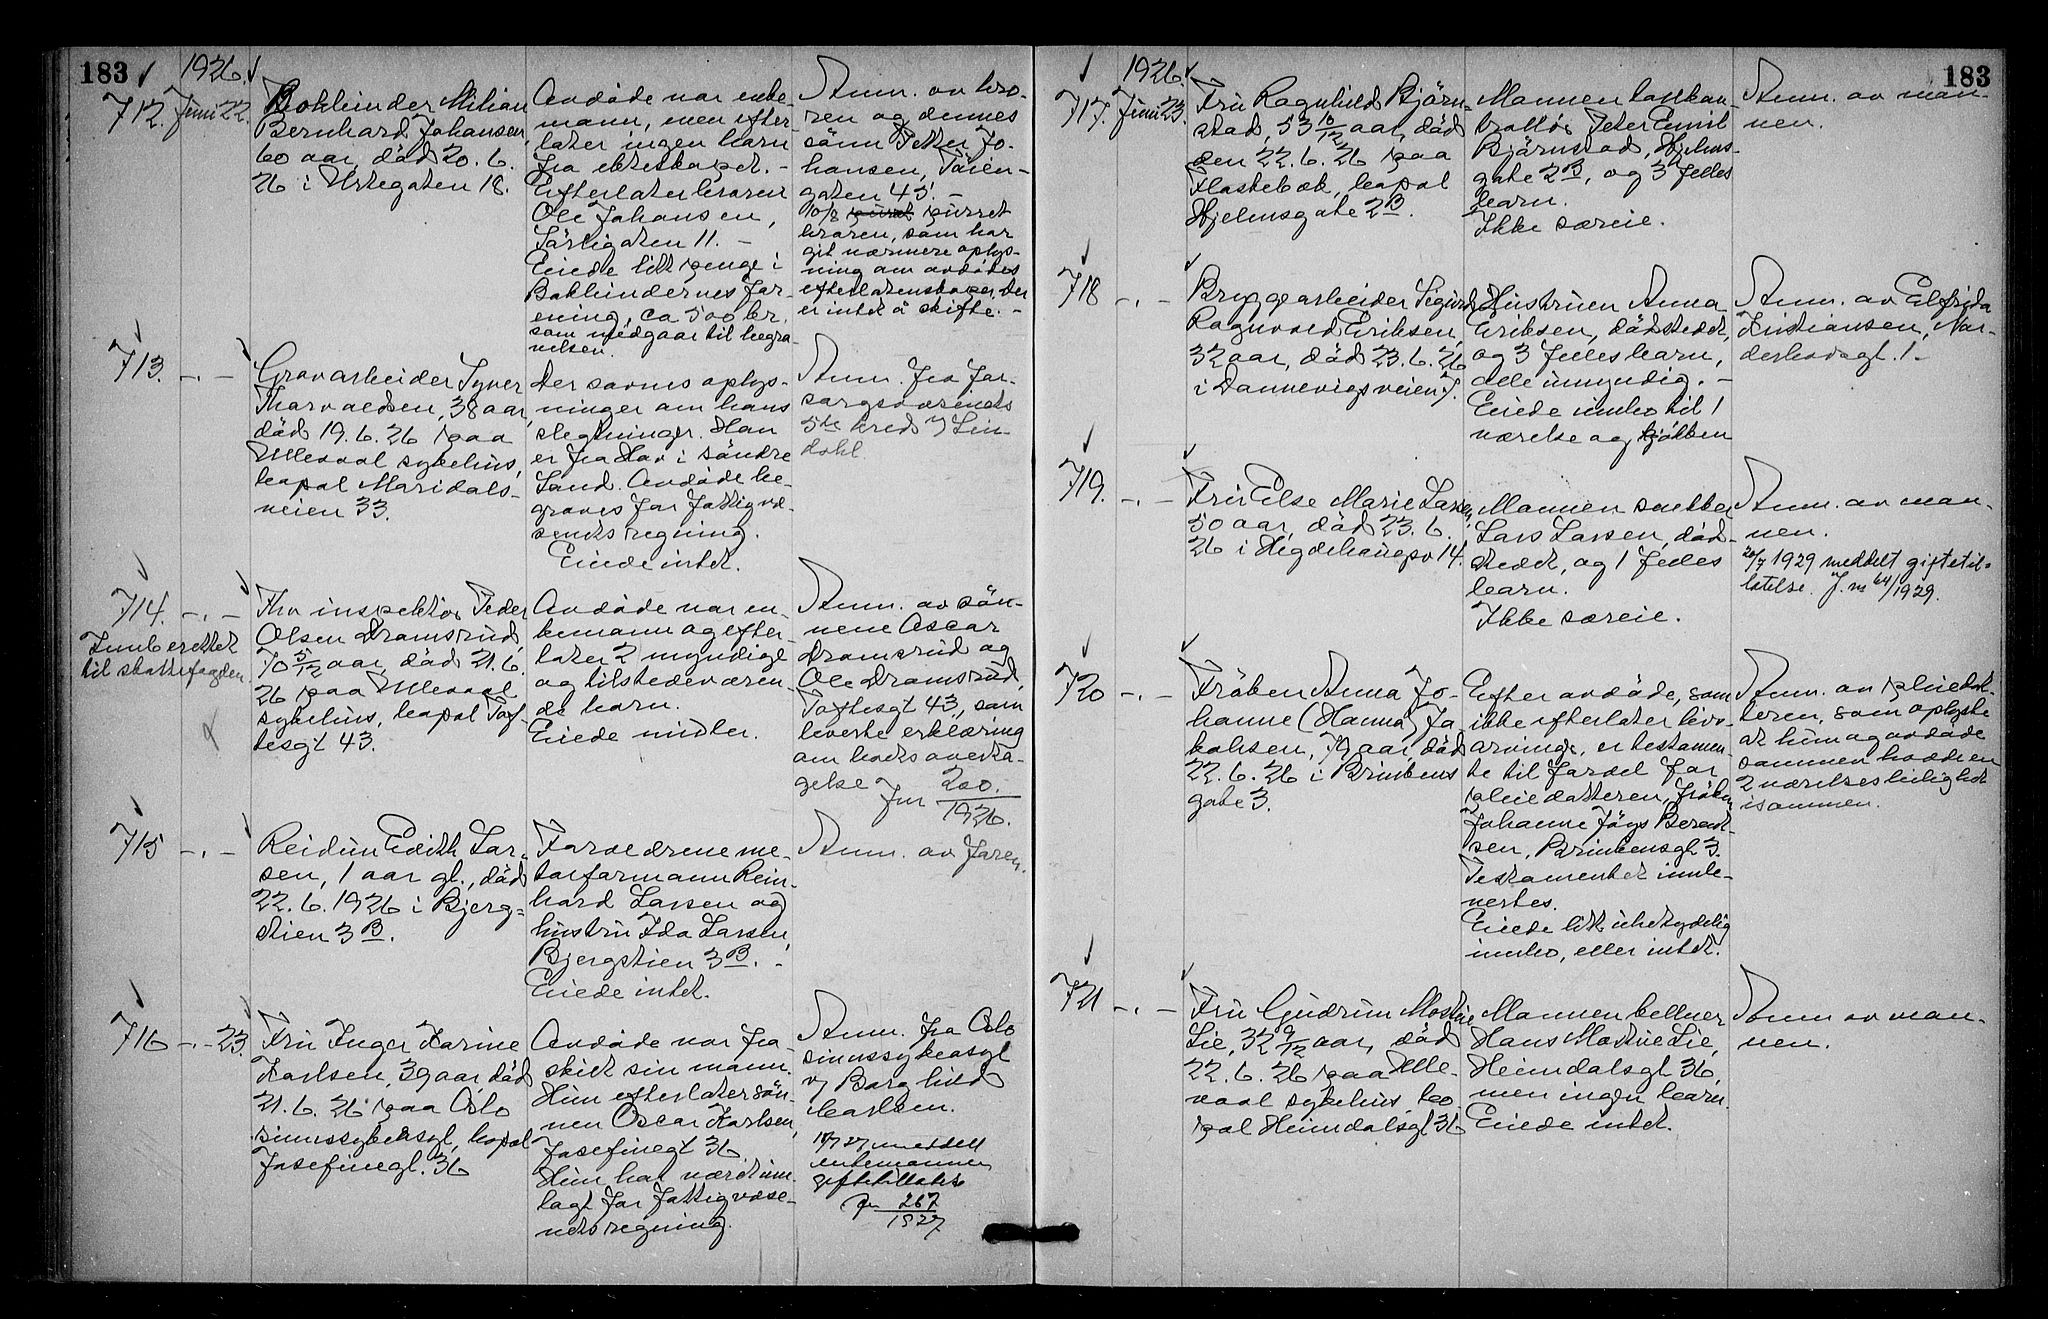 183
1926.
712. Juni 22.
Bokbinder Milian
Bernhard Johansen,
60 aar, död 20. 6.
26 i Urtegaten 18.
Avdöde var enke-
mann, men efter-
later ingen barn
fra ekteskapet. -
Efterlater broren
Ole Johansen,
Sörligaten 11. -
Eiede litt penge i
Bokbindernes for-
ening, ca 500 kr.
som medgaar til begra-
velsen.
Anm. av bro-
ren og dennes
sönn Petter Jo-
hansen, Töien-
gaten 45. -
10/8 purret
broren, som har
git nærmere oplys-
ning om avdödes
efterlatenskaper. Der
er intet å skifte. -
713. -.-
Gravarbeider Syver
Thorvaldsen, 38 aar,
död 19. 6. 26 paa
Ullevaal sykehus,
bopal Maridals-
veien 33.
Der savnes oplys-
ninger om hans
slegtninger. Han
er fra Hov i söndre
Land. Avdöde be-
graves for fattigvæ-
senets regning.
Eiede intet.
Anm. fra for-
sorgsvæsenets
5te kreds v/ Lin-
dahl.
714. -.-
Innberettet
til skattefogden.
Fhv inspektör Peder
Olsen Dramsrud,
70 5/12 aar, död 21. 6.
26 paa Ullevaal
sykehus, bopal Tof-
tesgt 43.
Avdöde var en-
kemann og efter-
later 2 myndige
og tilstedeværen-
de barn.
Eiede midler.
Anm. av sön-
nene Oscar
Dramsrud og
Ole Dramsrud,
Toftesgt 43, som
leverte erklæring
om boets overta-
gelse Jnr 200./1926.
715 -.-
Reidun Edith Lar-
sen, 1 aar gl., död
22. 6. 1926 i Bjerg-
stien 3 B.
Forældrene me-
torformann Rein-
hard Larsen og
hustru Ida Larsen,
Bjergstien 3 B. -
Eiede intet.
Anm. av faren.
716 -.- 23.
Fru Inger Karine
Karlsen, 39 aar, död
21. 6. 26 paa Oslo
sinnssykeasyl, bopal
Josefinegt. 36
Avdöde var fra-
skilt sin mann.
Hun efterlater sön-
nen Oscar Karlsen,
Josefinegt 36.
Hun har været inn-
lagt for fattigvæse-
nets regning.
Anm. fra Oslo
sinnssykeasyl
v/ Borghild
Carlsen.
27 meddelt
enkemannen
giftetillatelse
Jnr 267/1927
183
1926.
717. Juni 23.
Fru Ragnhild Björn-
stad, 53 10/12 aar, död
den 22. 6. 26 paa
Flaskebæk, bopal
Hjelmsgate 2 B.
Mannen lasskon-
trollör Peter Emil
Björnstad, Hjelms-
gate 2 B, og 3 felles
barn.
Ikke særeie.
Anm. av man-
nen.
718 -.-
Bryggearbeider Sigurd
Ragnvald Eriksen,
32 aar, död 23. 6. 26
i Dannevigsveien 7.
Hustruen Anna
Eriksen, dödstedet,
og 3 felles barn,
alle umyndig. -
Eiede innbo til 1
værelse og kjökken
Anm. av Elfrida
Kristiansen, Nor-
derhovsgt. 1 -
719. -.-
Fru Else Marie Larsen,
50 aar, död 23. 6.
26 i Hegdehaugsv 14.
Mannen snekker
Lars Larsen, död-
stedet, og 1 felles
barn.
Ikke særeie.
Anm. av man-
nen.
20/7 1929 meddelt giftetil-
latelse. J. nr 64/1929.
720 -.-
Fröken Anna Jo-
hanne (Hanna) Ja-
kobsen, 79 aar, död
22. 6. 26 i Brinkens
gate 3.
Efter avdöde, som
ikke efterlater livs-
arvinge, er testamen-
te til fordel for
pleiedatteren, fröken
Johanne Berent-
sen, Brinkensgt 3.
Testamentet innle-
vertes.
Eiede litt ubetydelig
innbo, eller intet.
Anm. av pleiedat-
teren, som oplyste
at hun og avdöde
sammen hadde en
2 værelses leilighet
isammen.
721 -.-
Fru Gudrun Mostue
Lie, 32 9/12 aar, död
22. 6. 26 paa Ulle-
vaal sykehus, bo-
pal Heimdalsgt 36
Mannen kellner
Hans Mostue Lie,
Heimdalsgt 36,
men ingen barn.
Eiede intet.
Anm av man-
nen.